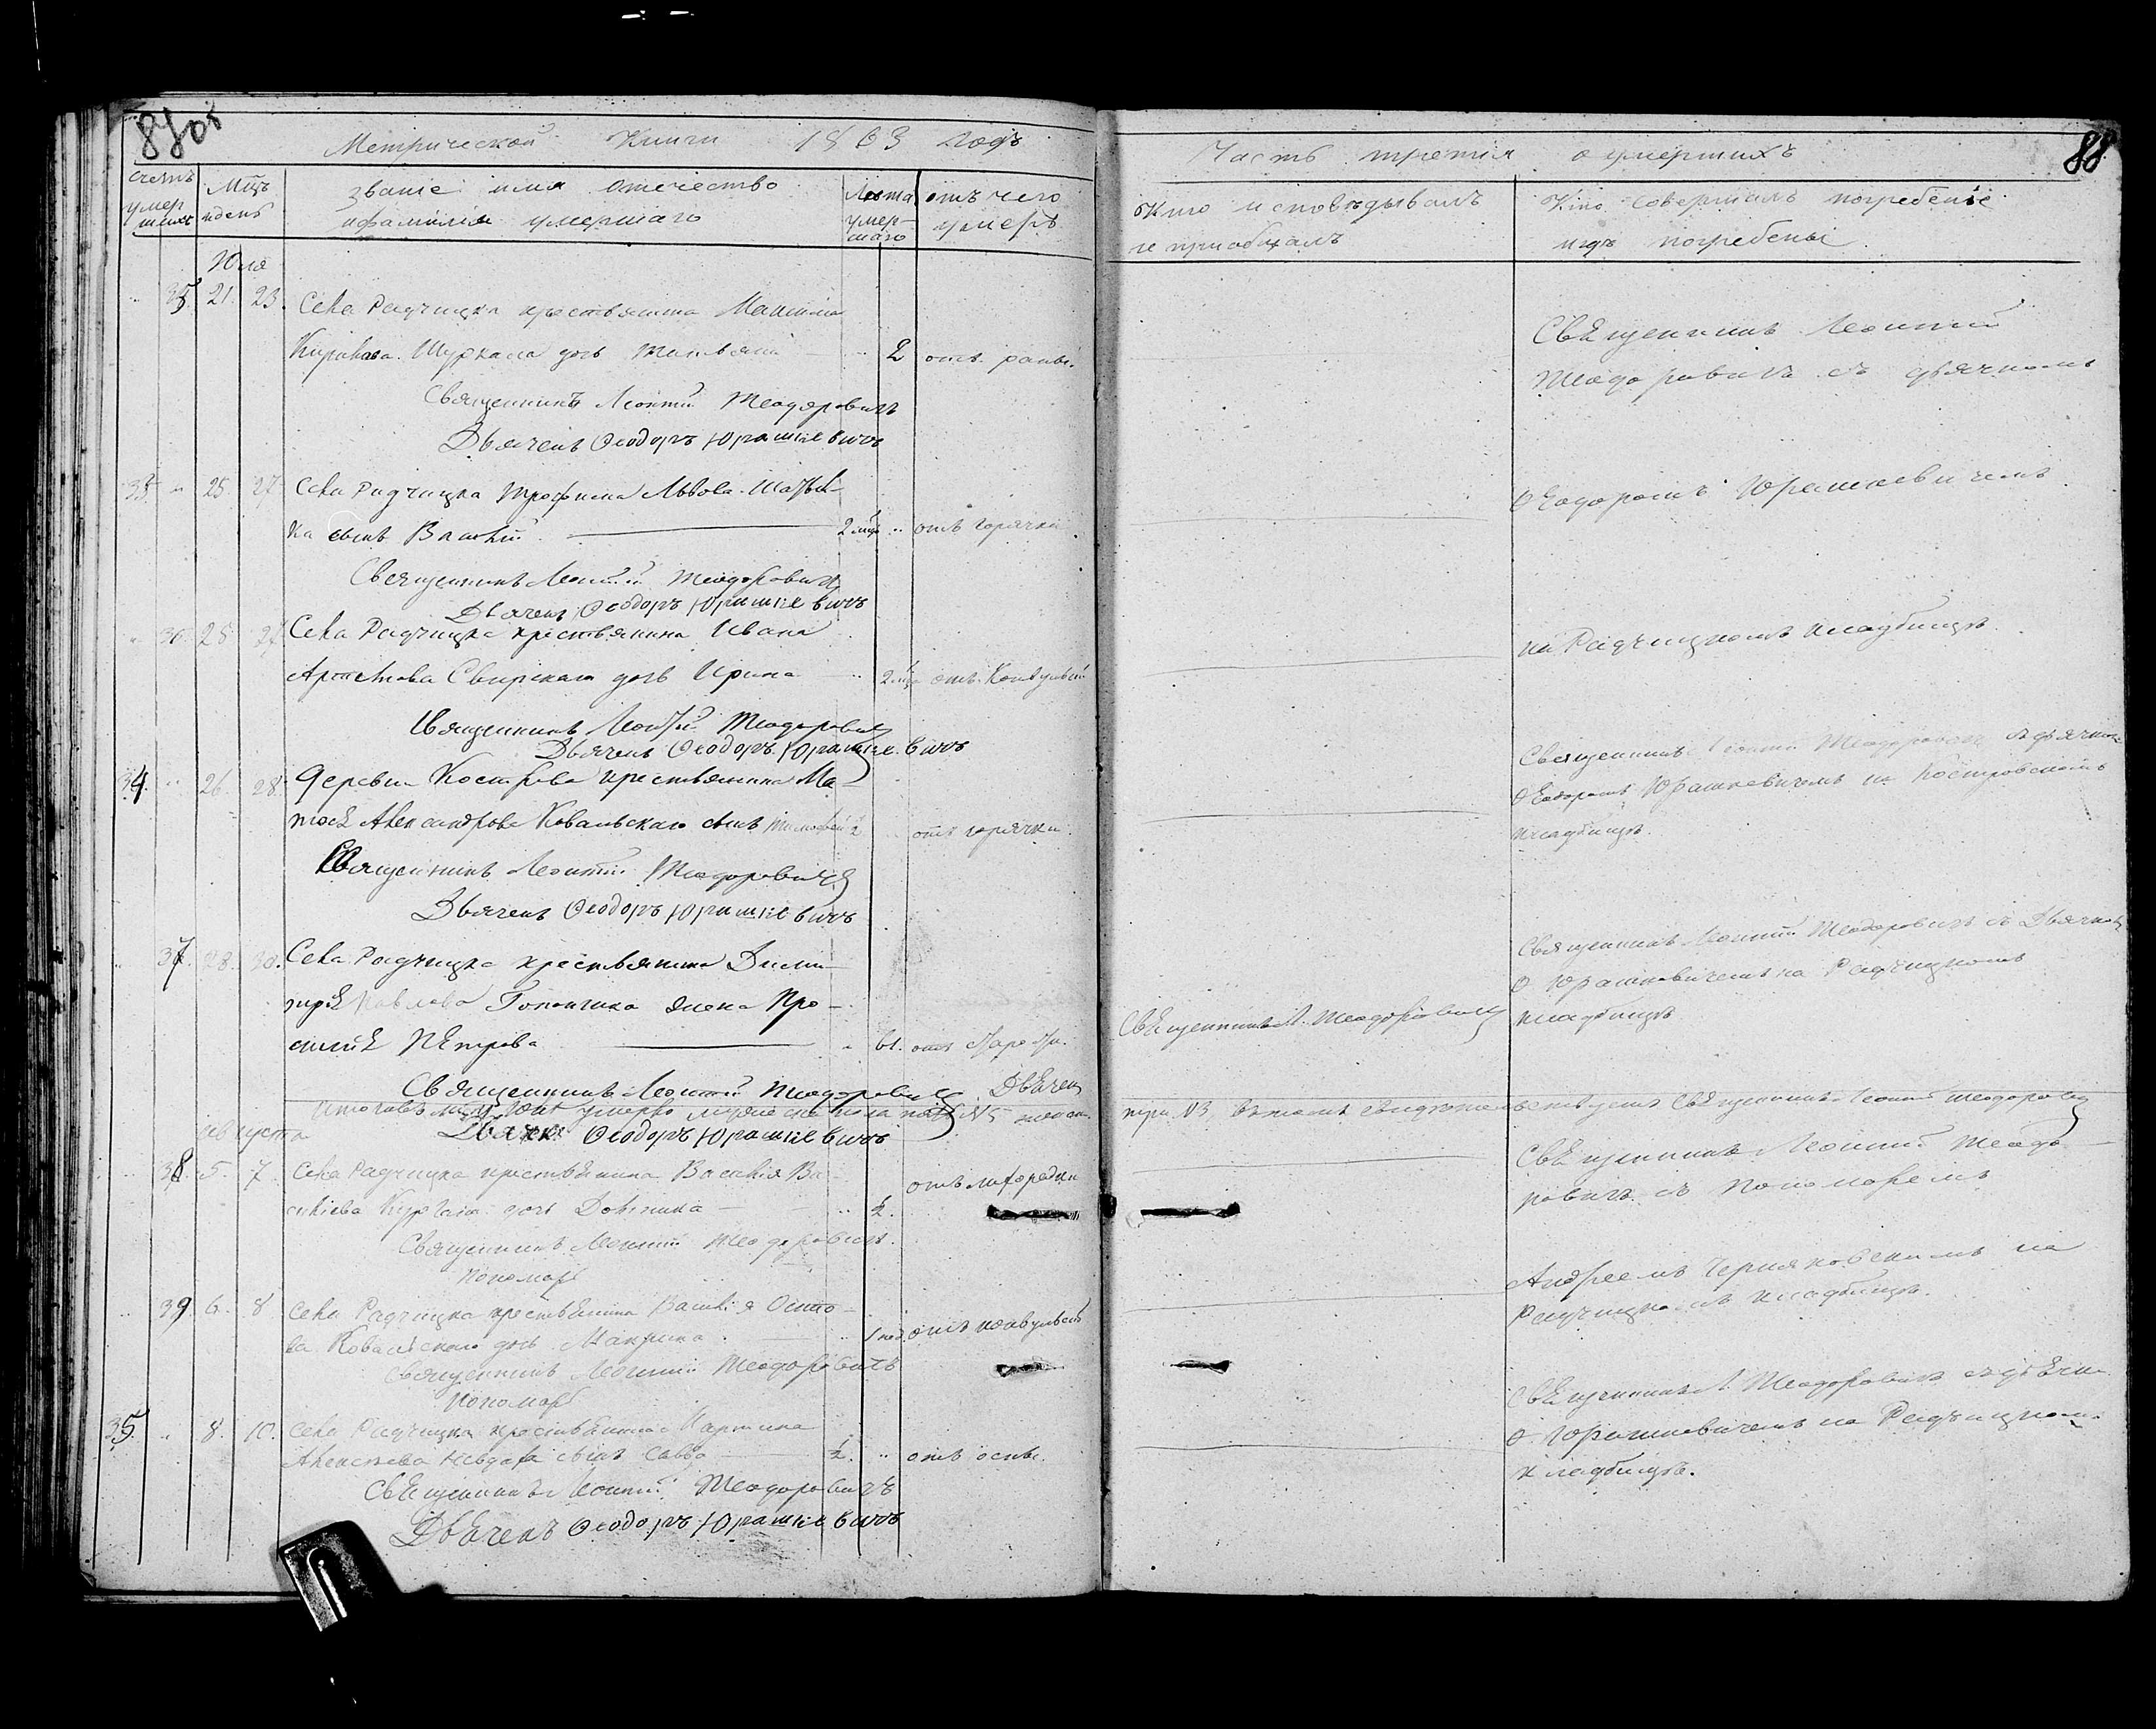 87об
88
Метрической Книги 1863 годъ
Часть третія о умершихъ
счетъ умершихъ
Мцъ и день
званіе имя отечество и фамилія умершаго
Лета умершаго
отъ чего умеръ
Кто исповѣдывалъ и приобщалъ
Кто совершалъ погребеніе и гдѣ погребены
Юля
35. 21. 23. Села Радчицка крестьянина Максима
2 отъ раны.
Священникъ Леонтій Теодоровичъ
Дьячекъ Ѳеодоръ Юрашкевичъ
Священникъ Леонтій
Теодоровичъ съ дьячкомъ
33. " 25. 27. Села Радчицка Трофима Львова
ка сынъ Василій 2 мца " отъ горячки
Священникъ Леонтій Теодоровичъ
Дьячекъ Ѳеодоръ Юрашкевичъ
Ѳеодоромъ Юрашкевичемъ
" 36. 25. 27. Села Радчицка крестьянина Ивана
дочь Ирина " 2 мца отъ Конвульсій
Священникъ Леонтій Теодоровичъ
Дьячекъ Ѳеодоръ Юрашкевичъ
на Радчицкомъ кладбищѣ
34. " 26. 28. Деревни Кострова крестьянина Ма
тѳея Александрова Ковальскаго сынъ Тимофей 2 отъ горячки.
Священникъ Леонтій Теодоровичъ
Дьячекъ Ѳеодоръ Юрашкевичъ
Священникъ Леонтій Теодоровичъ съ дьячкомъ
Ѳеодоромъ Юрашкевичемъ на Костровскомъ
кладбищѣ.
37. 28. 30. Села Радчицка крестьянина Дими
трія Павлова жена Про
Петрова " 61. отъ
Священникъ Леонтій Теодоровичъ Дьячекъ
Ѳеодоръ Юрашкевичъ
Священникъ Л. Теодоровичъ
Священникъ Леонтій Теодоровичъ съ Дьячкомъ
Ѳ. Юрашкевичемъ на Радчицкомъ
кладбищѣ
Итого въ мцѣ Юлѣ умерло мужеска пола N5 женска
N3. въ томъ свидѣтельствуетъ Священникъ Леонтій Теодоровичъ
августа
" 38. 5. 7. Села Радчицка крестьянина Василія Ва
силіева дочь Домника " 2. отъ лихорадки
Священникъ Леонтій Теодоровичъ.
Пономарь
Священникъ Леонтій Теодо
ровичъ съ пономаремъ
" 39 6. 8 Села Радчицка крестьянина Василія Осипо
ва Ковальскаго дочь Макрина " 1 отъ конвульсій
Священникъ Леонтій Теодоровичъ
Пономарь
Андреемъ Черняковскимъ на
Радчицкомъ кладбищѣ.
35. " 8. 10. Села Радчицка крестьянина Мартина
Алексѣева сынъ Савва 2. " отъ оспы.
Священникъ Леонтій Теодоровичъ
Дьячекъ Ѳеодоръ Юрашкевичъ
Священникъ Л. Теодоровичъ съ дьячк.
Ѳ. Юрашкевичемъ на Радчицкомъ
кладбищѣ.